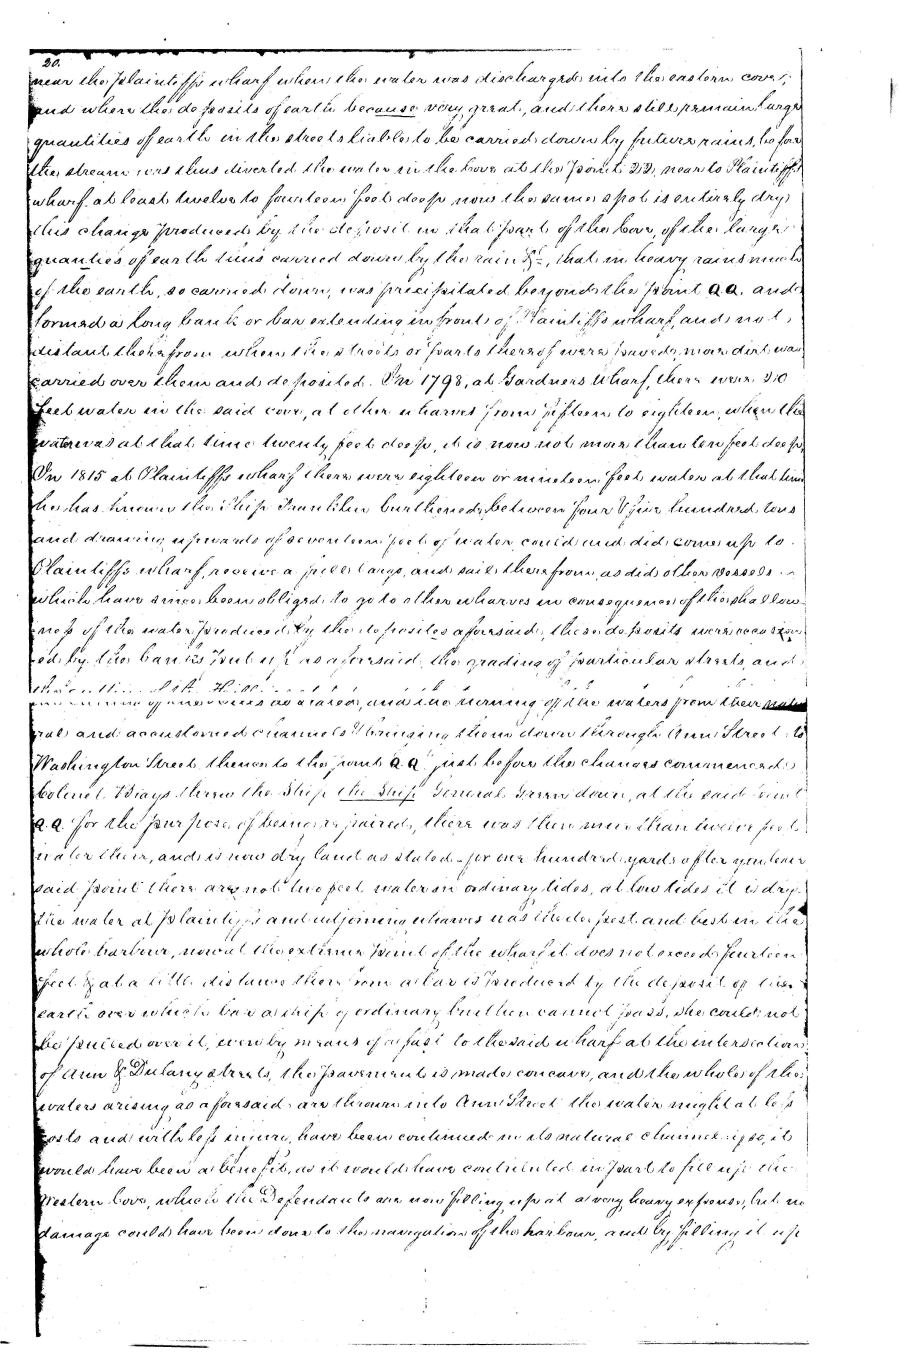 20.
near the Plaintiffs wharf when the water was discharged into the eastern cove,
and where the deposits of earth because very great, and there still remain large
quantities of earth in the streets liable to be carried down by future rains, before
the stream was thus diverted the water in the Cove at the Point 22, near to Plaintiffs
wharf at least twelve to fourteen feet deep now the same spot is entirely dry,
this change produced by the deposit in that part of the Cove, of the large
quanties of earth thus carried down by the rain &c, that in heavy rains much
of the earth, so carried down, was precipitated beyond the point a.a. and
formed a long bank or bar extending in front of Plaintiffs wharf, and not
distant therefrom when the streets or parts thereof were paved, more dirt was
carried over them and deposited. In 1798, at Gardners wharf, there were 20
feet water in the said cove, at other wharves from fifteen to eighteen, when the
water was at that time twenty feet deep, it is now not more than ten feet deep,
In 1815 at Plaintiffs wharf there were eighteen or nineteen feet water at that time
he has known the Ship Franklin burthened between four & five hundred tons
and drawing upwards of seventeen feet of water could and did come up to
Plaintiffs wharf, receive a full cargo, and sail therefrom, as did other vessels
which have since been obliged to go to other wharves in consequence of the shallow-
ness of the water produced by the deposites aforesaid, these deposits were occasion
ed by the banks put up as aforesaid, the grading of particular streets, and
the cutting of the Hills as stated, and the turning of the waters from their natu
ral and accustomed channels & bringing them down through Ann Street to
Washington Street thence to the Point a.a. just before the changes commenced
Colonel Biays threw the Ship the Ship General Green down, at the said Point
a.a. for the purpose of being repaired, there was then more than twelve feet
water their, and is now dry land as stated - for one hundred yards after you leave
said point there are not two feet water in ordinary tides, at low tides it is dry.
the water at plaintiffs and adjoining wharves was the deepest and best in the
whole harbour, now at the extreme point of the wharf it does not exceed fourteen
feet & at a little distance therefrom a bar is produced by the deposit of this
earth over which bar a ship of ordinary burthen cannot pass, she could not
be pulled over it, even by means of a fast to the said wharf at the intersection
of Ann & Dulany streets, the pavement is made concave, and the whole of the
waters arising as aforesaid are thrown into Ann Street the water might at less
costs and with less injury, have been continued in its natural channel if so, it
would have been a benefit, as it would have contributed in part to fill up the
Western Cove, which the Defendants are now filling up at a very heavy expense, but no
damage could have been done to the navigation of the harbour, and by filling it up